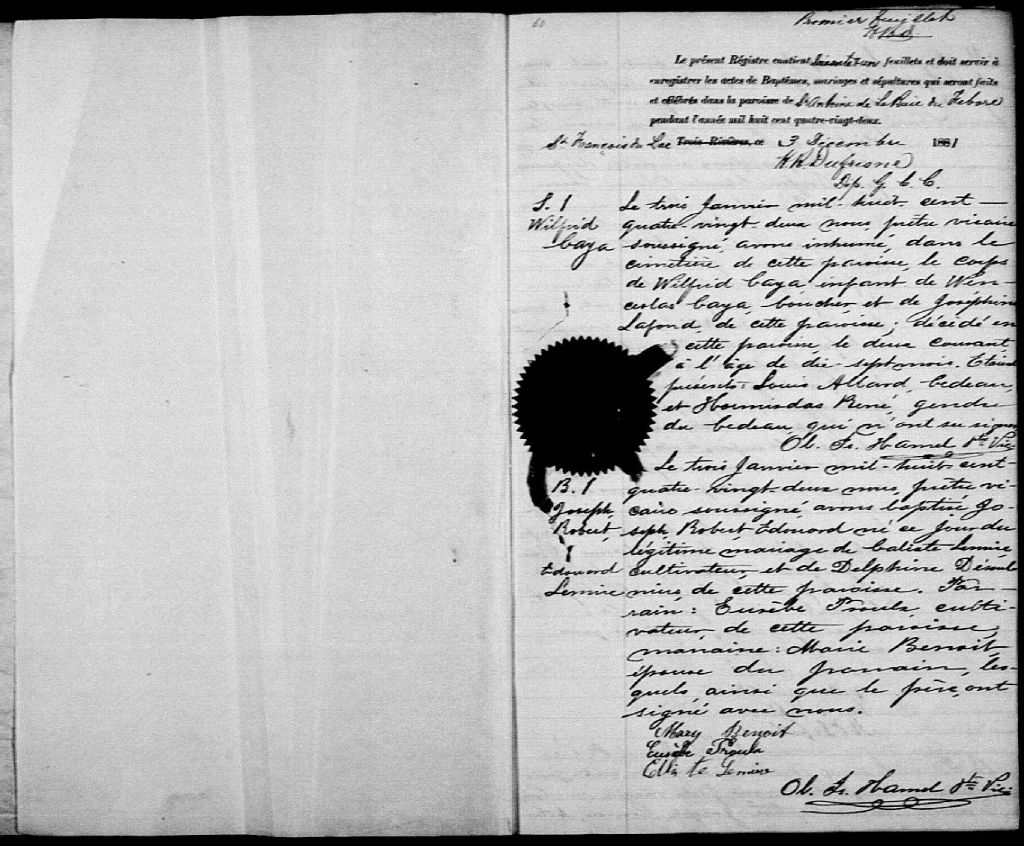 60
Premier feuillet
Le présent Régistre contient soixante un feuillets et doit servir à
enregistrer les actes de Baptêmes, mariages et sépultures qui seront faits
et célébrés dans la paroisse de St Antoine de La Baie du Febvre
pendant l'année mil huit cent quatre-vingt-deux.
St François du Lac Trois-Rivières, ce 3 Décembre 1881
Dufresne
Dep. G. C. C.
S. 1
Wilfrid
Caya
Le trois Janvier mil-huit-cent-
quatre-vingt-deux nous, prêtre vicaire
soussigné, avons inhumé, dans le
cimetière de cette paroisse, le corps
de Wilfrid Caya, enfant de Wen-
ceslas Caya, boucher, et de Joséphine
Lafond, de cette paroisse; décédé en
cette paroisse, le deux courant,
à l'âge de dix-sept mois. Etaient
présents: Louis Allard, bedeau,
et Hormisdas René, gendre
du bedeau, qui n'ont su signer
Ob. Is. Hamel Ptre Vic.
B. 1
Joseph,
Robert,
Edouard
Lemire
Le trois Janvier mil-huit-cent-
quatre-vingt-deux nous, prêtre vi-
caire soussigné avons baptisé Jo-
seph, Robert, Edouard né ce jour du
légitime mariage de Caliste Lemire
cultivateur, et de Delphine
de cette paroisse. Par-
rain: Eusèbe Proulx culti-
vateur, de cette paroisse,
marraine: Marie Benoit,
épouse du parrain, les-
quels, ainsi que le père, ont
signé avec nous.
Mary Benoit
Eusèbe Proulx
Lemire
Ob. Is. Hamel Ptre Vic.